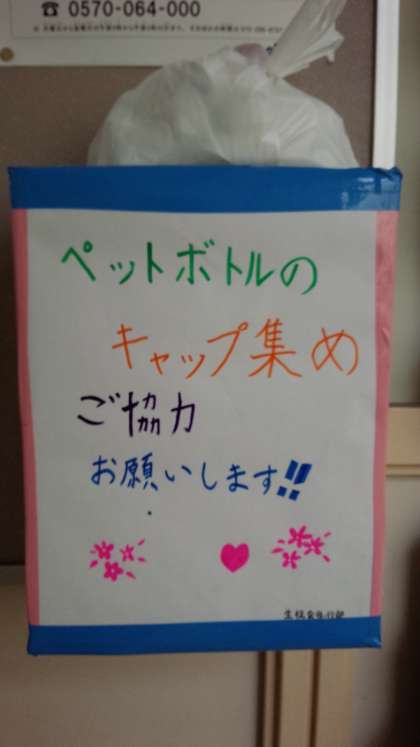 ☎ 0570-064-000
ペットボトルの
キャップ集め
ご協力
お願いします!!